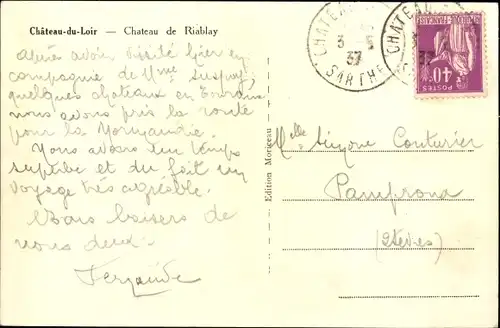 Château-du-Loir — Chateau de Riablay
CHATEAU
3 5
37
SARTHE
CHATEAU
3
37
POSTES
40c
Après avoir visité hier en
compagnie de Mme
quelques chateaux en Touraine
nous avons pris la route
pour la Normandie.
Nous avons un temps
superbe et du fait un
voyage très agréable.
Bons baisers de
nous deux.
Fernande
Edition Moriceau
Melle Simone Couturier
Pamprona
(2 Sèvres)